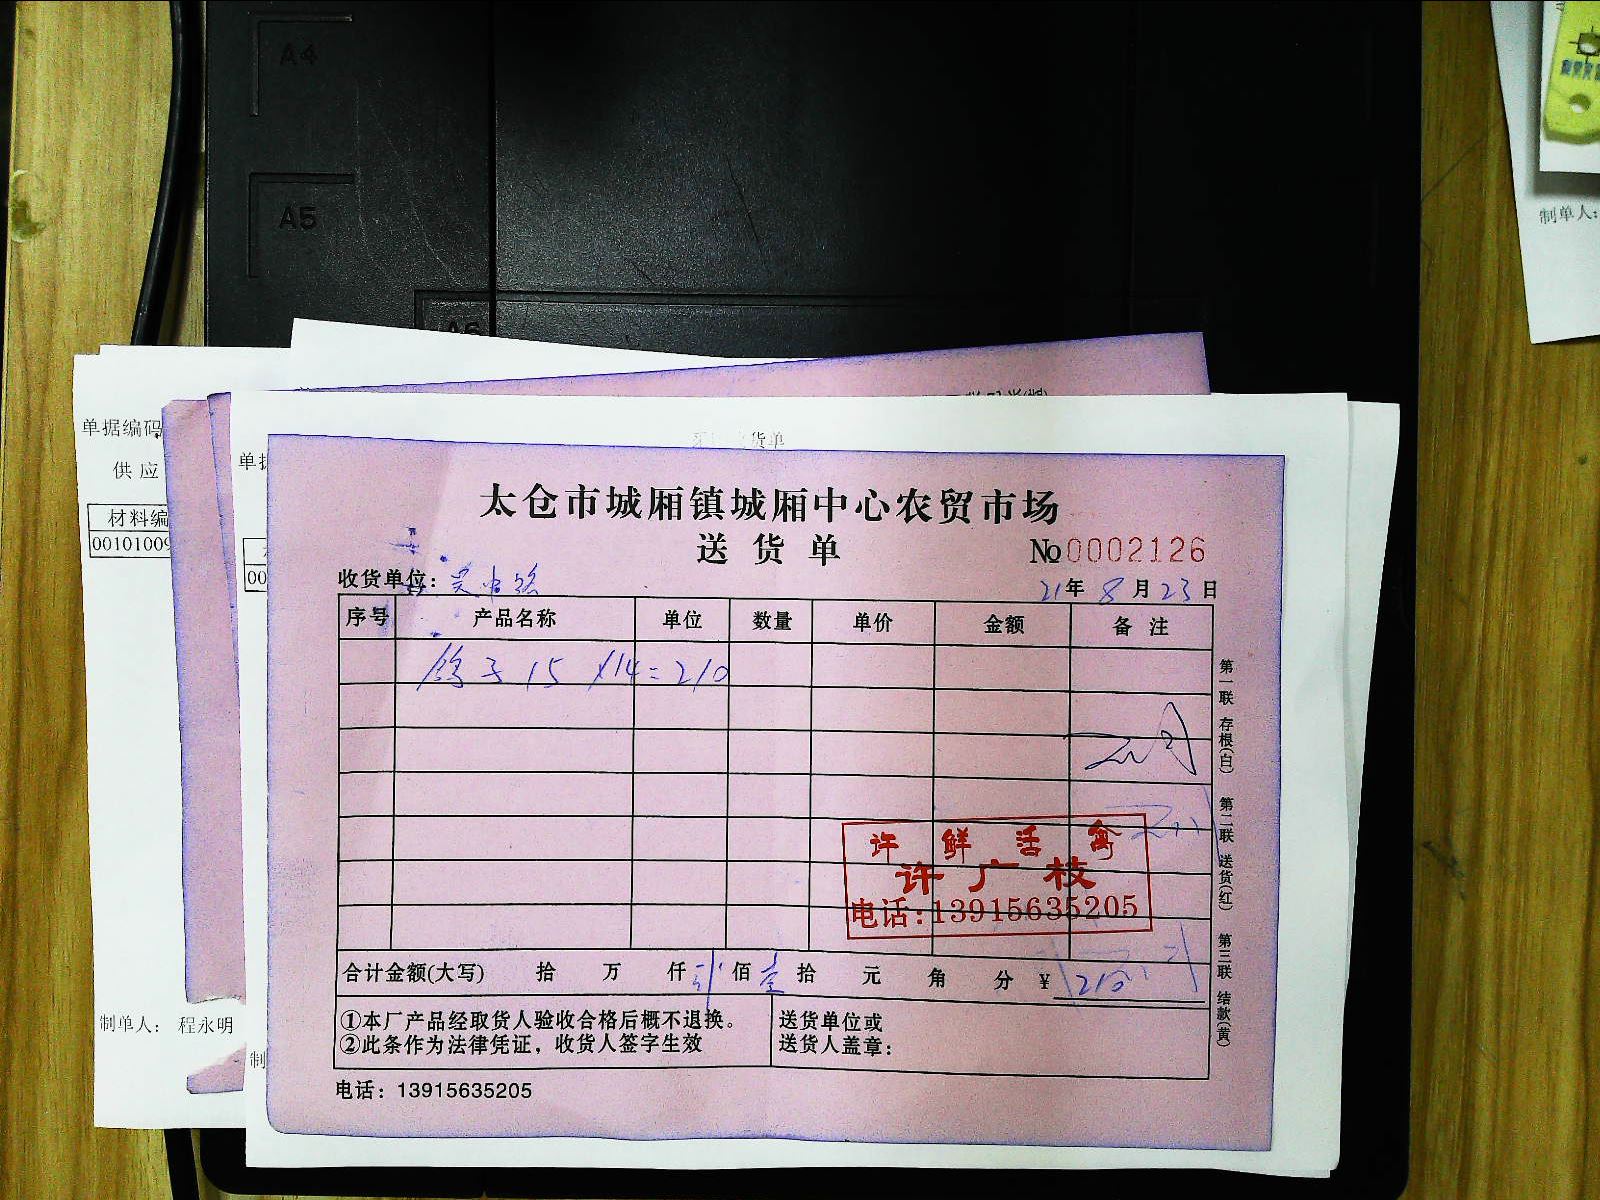 A4
A5
A6
制单人:
单据编码
供应
材料编
00101009
单据
00
货单
太仓市城厢镇城厢中心农贸市场
送货单
No 0002126
收货单位:
21年 8月 23日
序号 产品名称 单位 数量 单价 金额 备注
鸽子 15 ×14=210
许鲜活禽
许广枝
电话:13915635205
合计金额(大写) 拾 万 仟 贰佰 壹拾 元 角 分 ¥ 210
①本厂产品经取货人验收合格后概不退换。
②此条作为法律凭证，收货人签字生效
送货单位或
送货人盖章:
电话: 13915635205
第一联 存根(白) 第二联 送货(红) 第三联 结款(黄)
制单人: 程永明
制